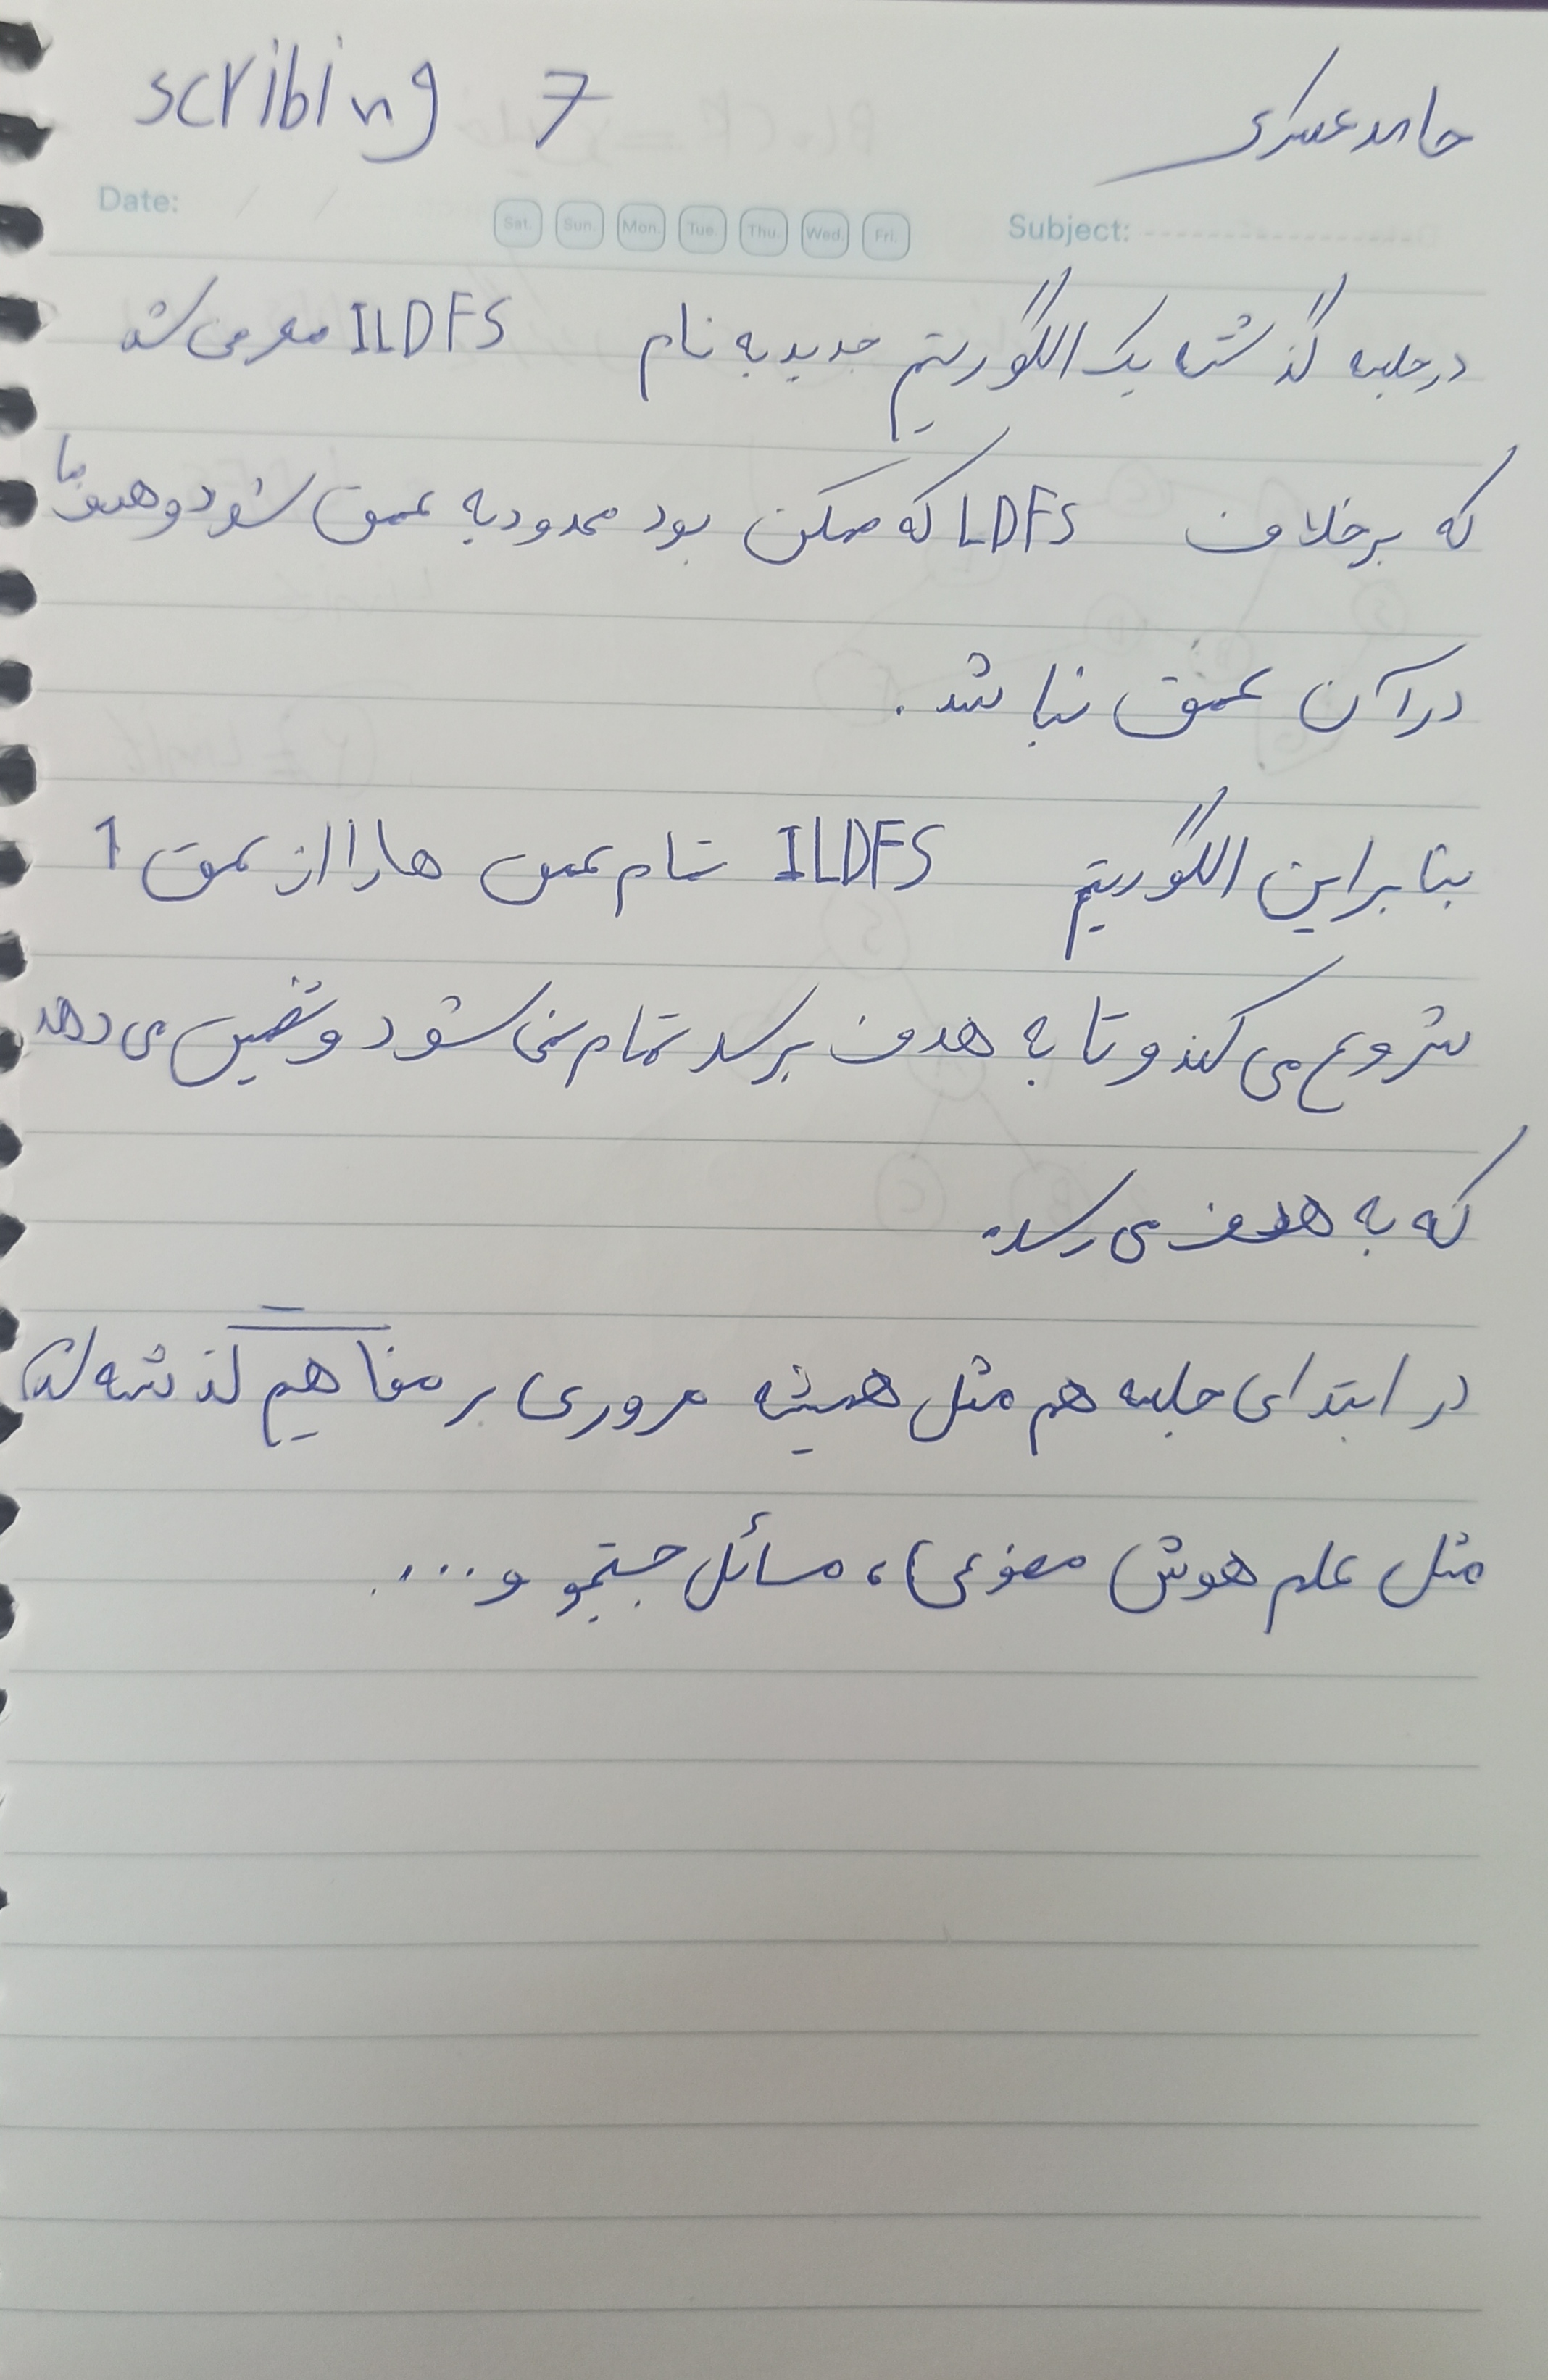 scribing 7
حامد عسکری
Date: / /
Sat. Sun. Mon. Tue. Thu. Wed. Fri.
Subject:
در جلسه گذشته یک الگوریتم جدید به نام ILDFS معرفی شد
که برخلاف LDFS که ممکن بود محدود به عمق شود و هدف ما
در آن عمق نباشد.
بنابراین الگوریتم ILDFS تمام عمق ها را از عمق 1
شروع می کند و تا به هدف برسد تمام نمی شود و تضمین می دهد
که به هدف می رسد.
در ابتدای جلسه هم مثل همیشه مروری بر مفاهیم گذشته شد
مثل علم هوش مصنوعی، مسائل جستجو و ....